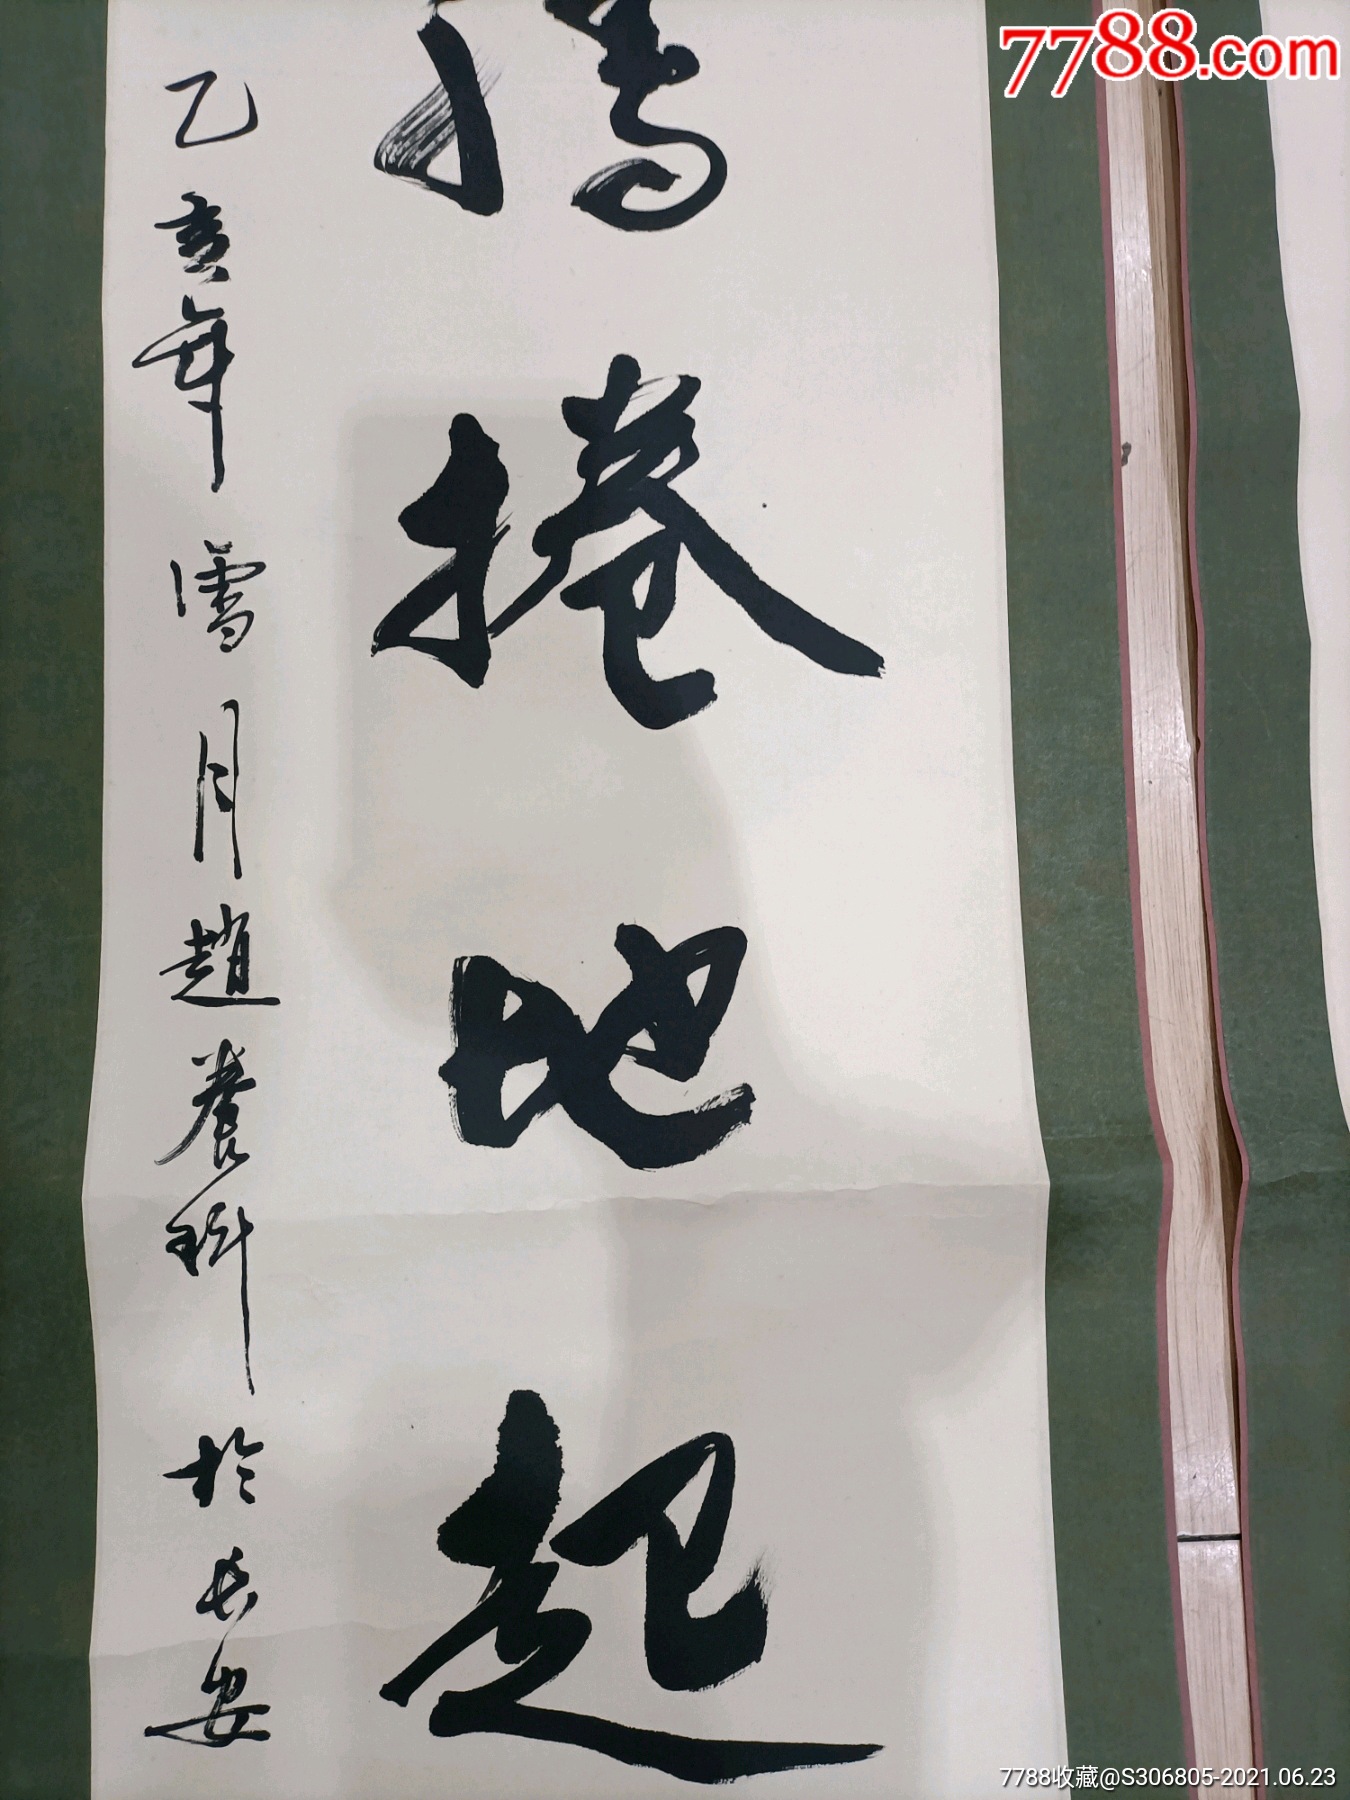 7788.com
騰捲地起
乙亥年雪月趙養科於長安
7788收藏@S306805-2021.06.23